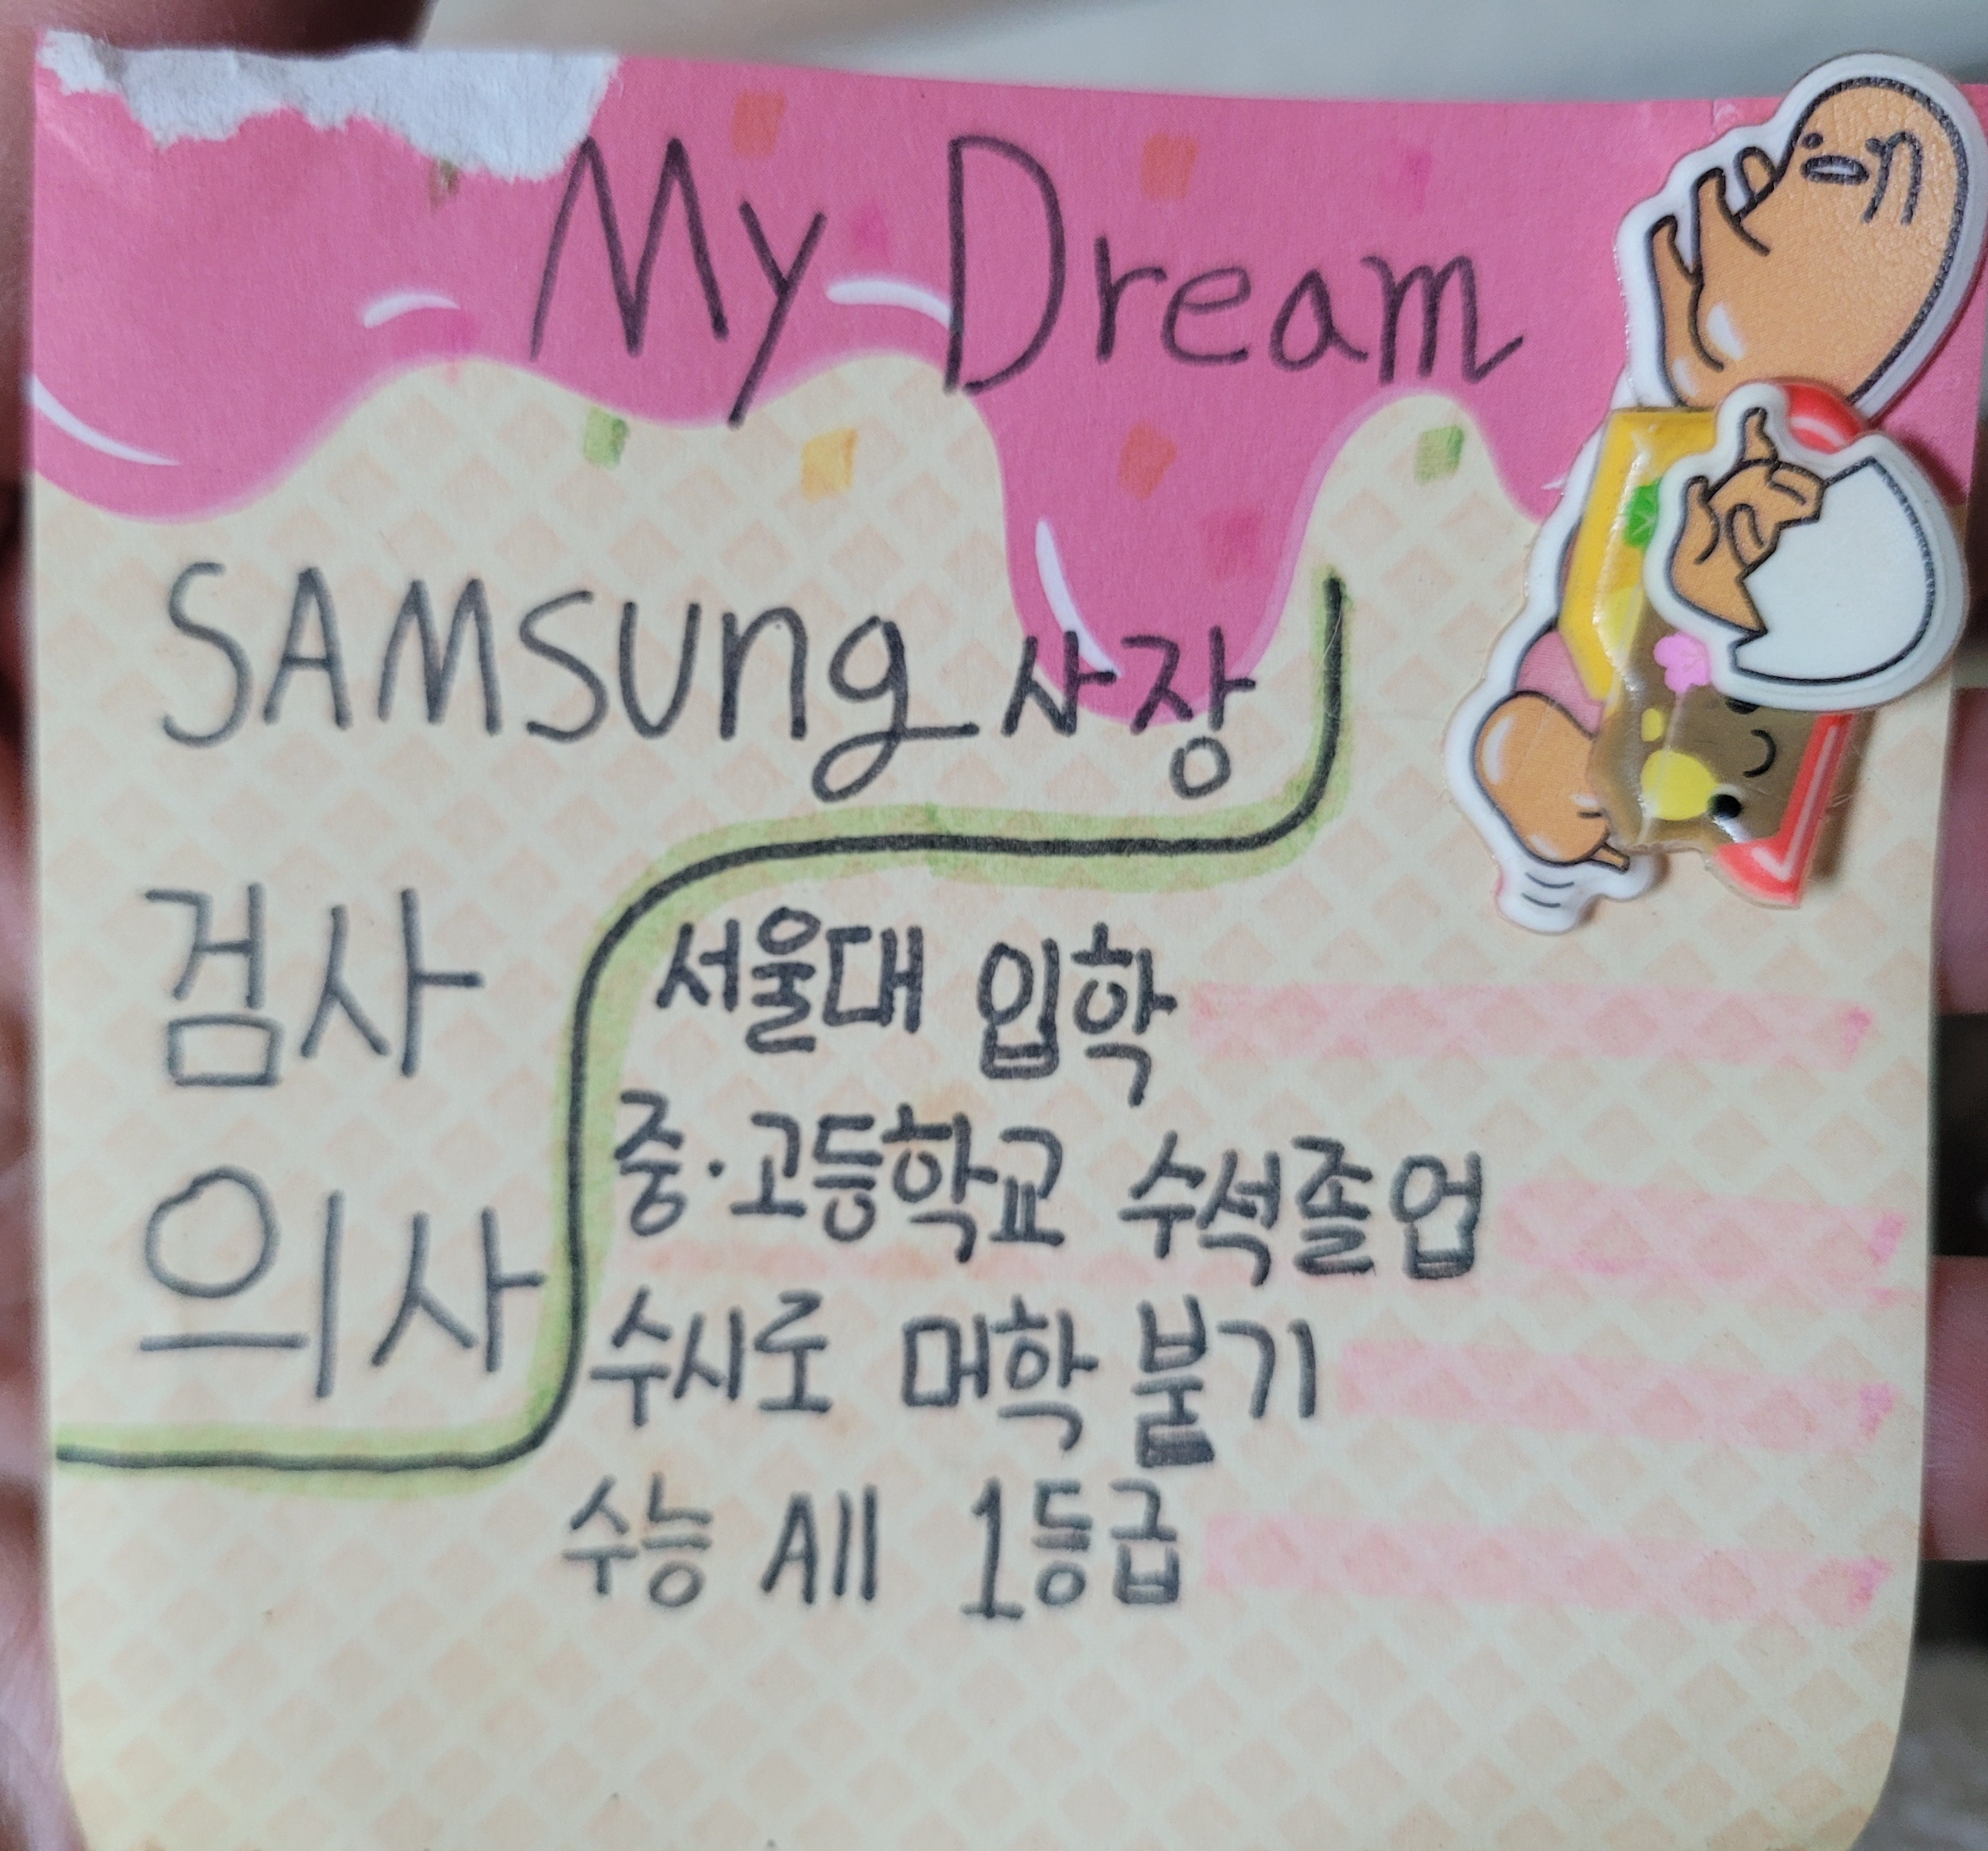 My Dream
SAMSUng 사장
검사
의사
서울대 입학
중·고등학교 수석졸업
수시로 대학 붙기
수능 All 1등급